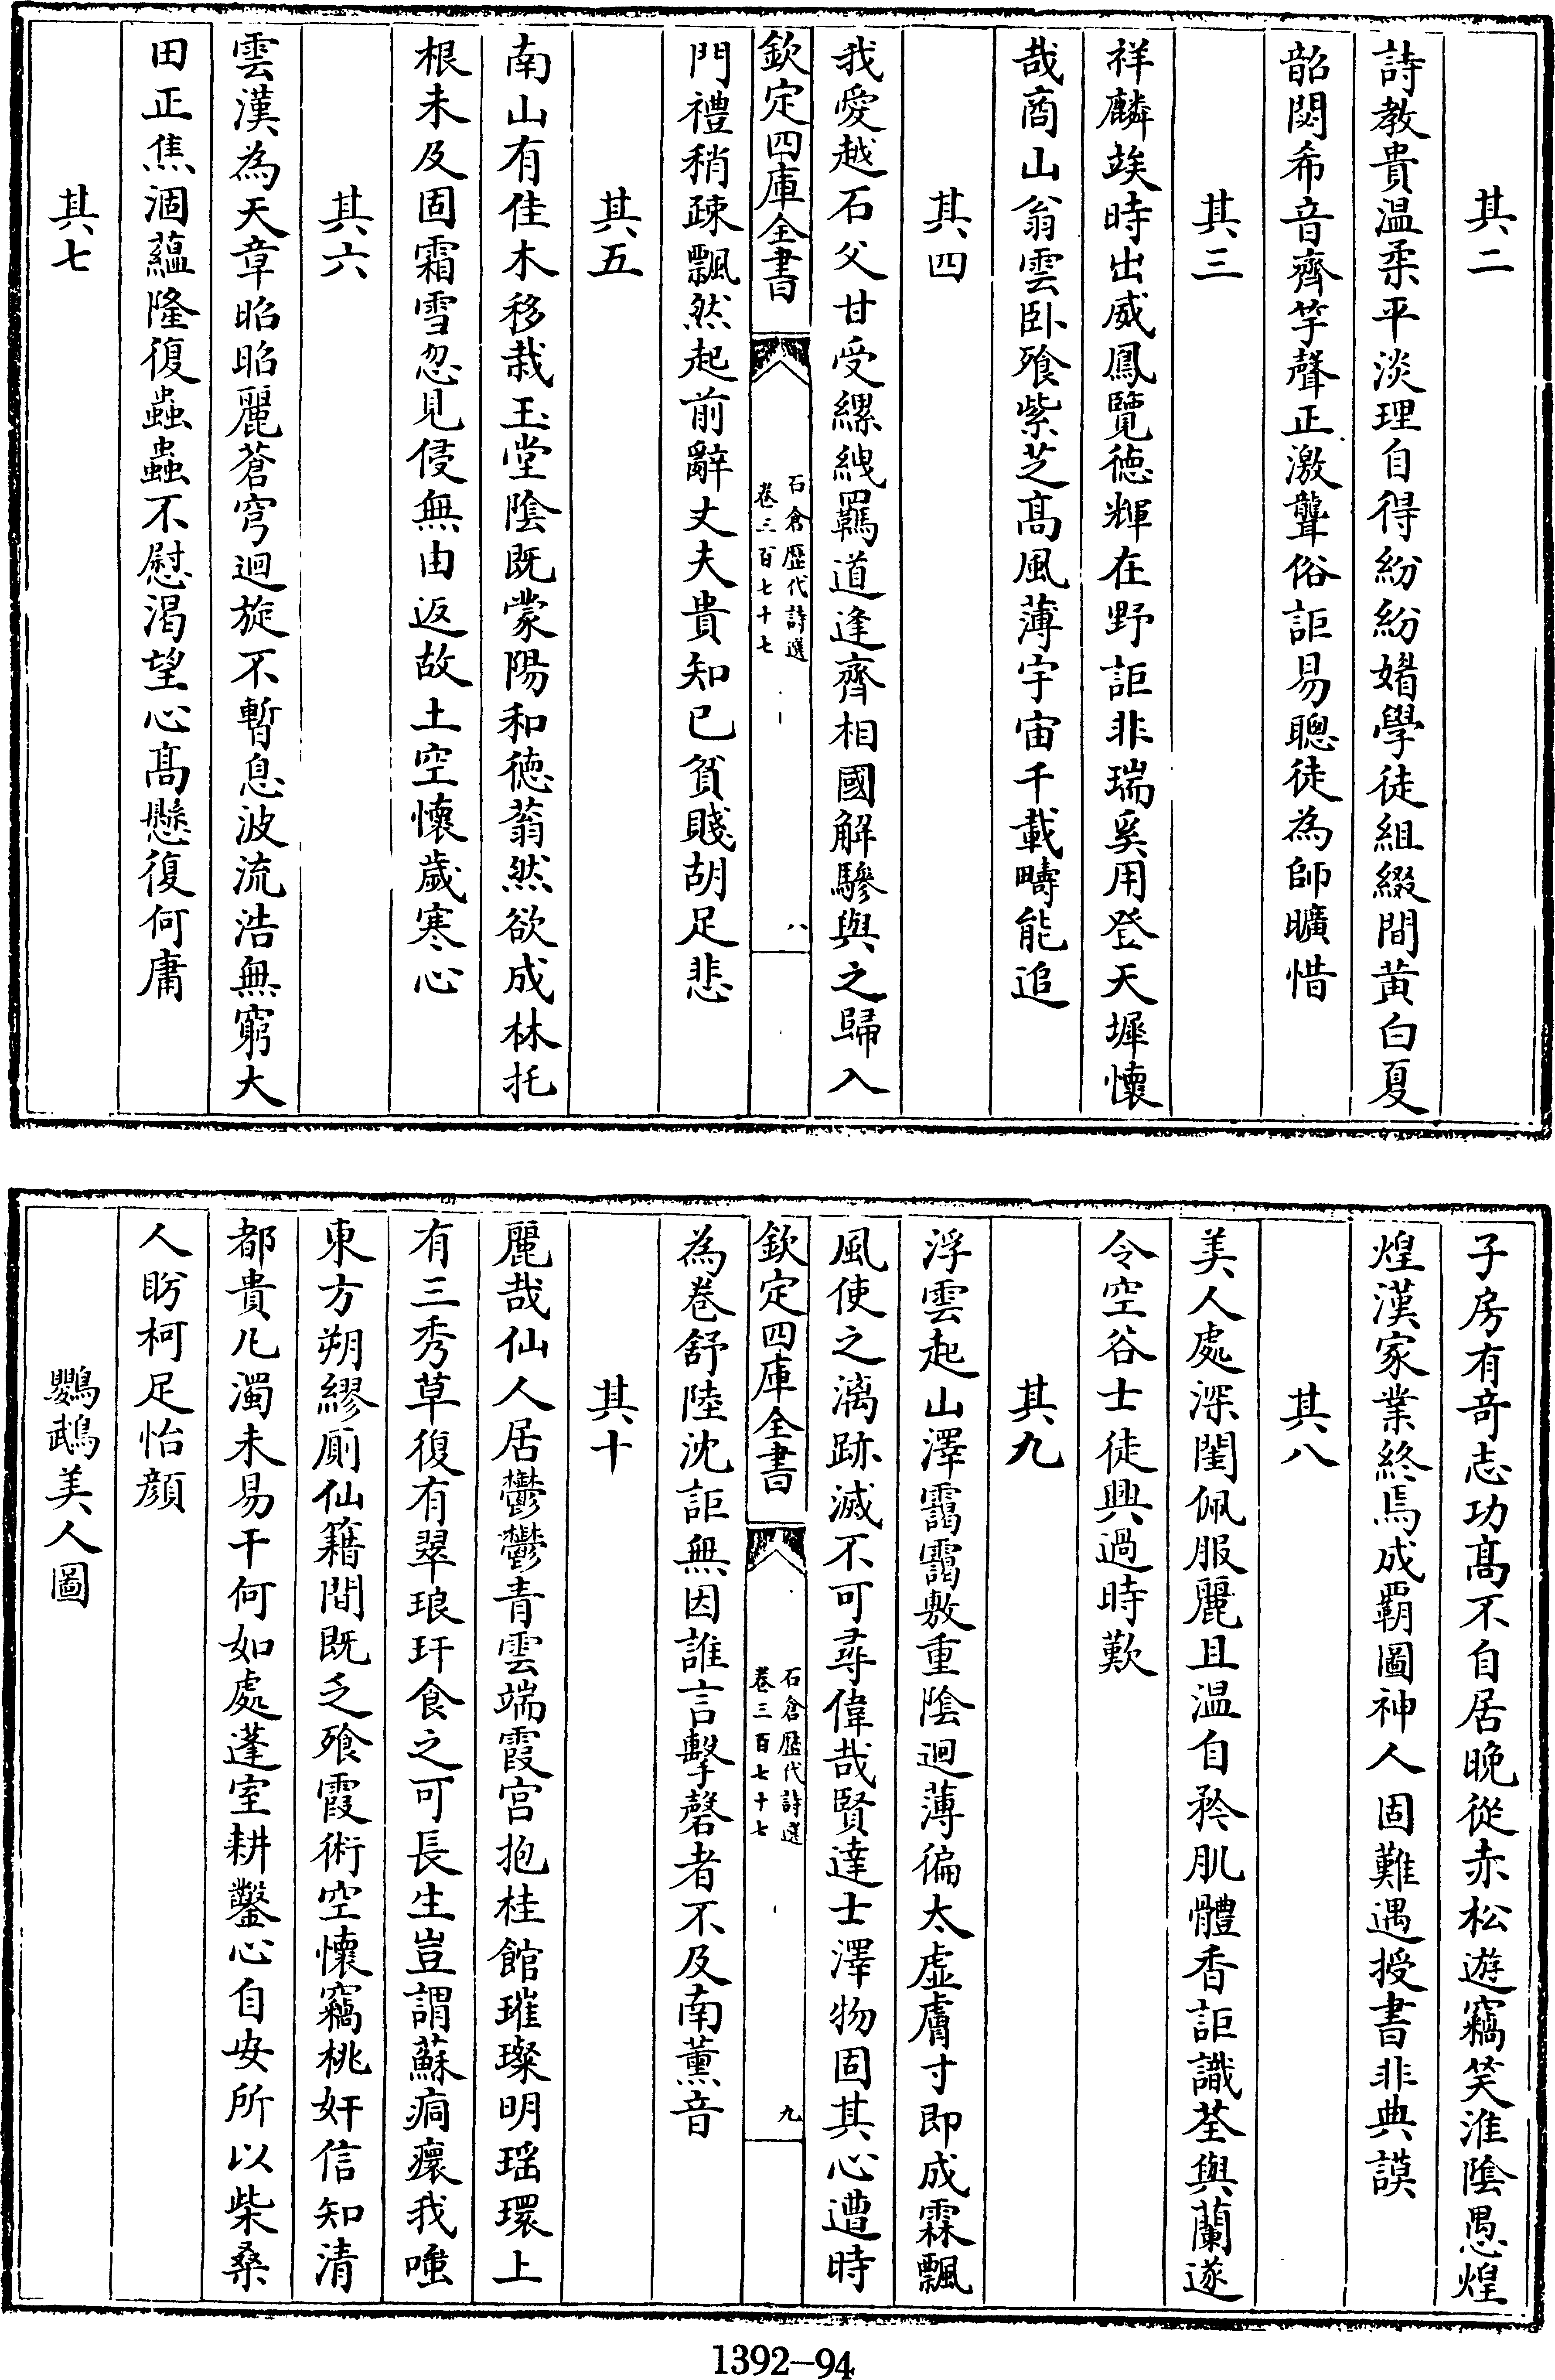 其二
詩教貴溫柔平淡理自得紛紛媢學徒組綴間黄白夏
韶闋希音齊竽聲正激聾俗詎易聰徒為師曠惜
其三
祥麟竢時出威鳳覽徳輝在野詎非瑞奚用登天墀懷
哉商山翁雲卧飱紫芝髙風薄宇宙千載疇能追
其四
我愛越石父甘受縲絏羈道逢齊相國解驂與之歸入
欽定四庫全書
石倉歴代詩選
卷三百七十七
八
門禮稍疎飄然起前辭丈夫貴知已貧賤胡足悲
其五
南山有佳木移栽玉堂陰既蒙陽和徳蓊然欲成林托
根未及固霜雪忽見侵無由返故土空懷歲寒心
其六
雲漢為天章昭昭麗蒼穹迴旋不暫息波流浩無窮大
田正焦涸藴隆復蟲蟲不慰渴望心髙懸復何庸
其七
子房有奇志功髙不自居晚從赤松遊竊笑淮陰愚煌
煌漢家業終焉成覇圖神人固難遇授書非典謨
其八
美人處深閨佩服麗且温自矜肌體香詎識荃與蘭遂
令空谷士徒興過時歎
其九
浮雲起山澤靄靄敷重陰迴薄徧太虚膚寸即成霖飄
風使之漓跡滅不可尋偉哉賢達士澤物固其心遭時
欽定四庫全書
石倉歴代詩選
卷三百七十七
九
為巻舒陸沈詎無因誰言擊磬者不及南薰音
其十
麗哉仙人居鬱鬱青雲端霞宫抱桂館璀璨明瑶環上
有三秀草復有翠琅玕食之可長生豈謂蘇痌瘝我嗤
東方朔繆厠仙籍間既乏飱霞術空懷竊桃奸信知清
都貴凡濁未易干何如處蓬室耕鑿心自安所以柴桑
人眄柯足怡顔
鸚鵡美人圖
1392-94